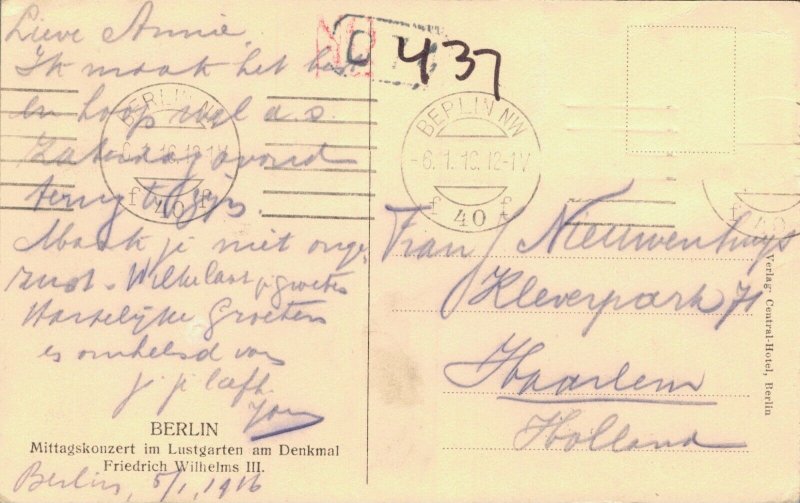 Lieve Annie,
Ik maak het best
en hoop wel a.s.
Zaterdag avond
terug te zijn.
Maak je niet onge-
rust. groeten
Hartelijke Groeten
en omhelsd van
je
BERLIN
Mittagskonzert im Lustgarten am Denkmal
Friedrich Wilhelms III.
Berlin, 5/1, 1916
437
BERLIN NW
-6.1.16.12-1V
f 40 f
BERLIN NW
-6.1.16.12-1V
f 40 f
f 40
Frau Nieuwenhuys
Kleverpark 71
Haarlem
Holland
Verlag: Central-Hotel, Berlin